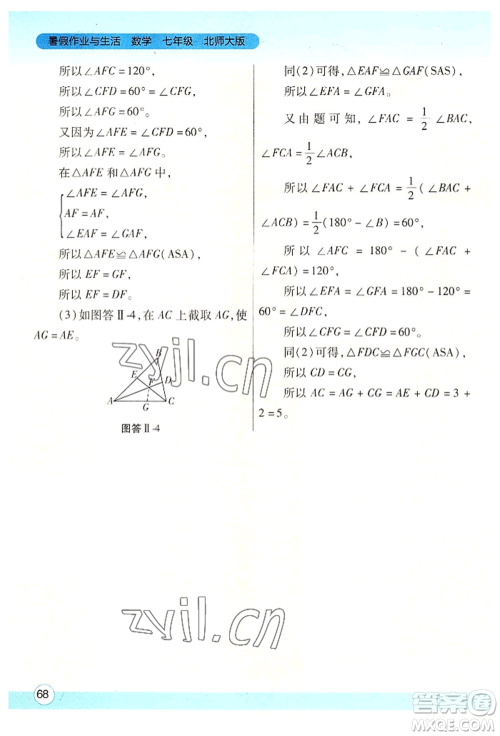 暑假作业与生活 数学 七年级 北师大版
所以∠AFC=120°,
所以∠CFD=60°=∠CFG,
所以∠AFG=60°。
又因为∠AFE=60°,
所以∠AFE=∠AFG。
在△AFE和△AFG中,
∠AFE=∠AFG,
AF=AF,
∠EAF=∠GAF,
所以△AFE≌△AFG(ASA),
所以EF=GF,
所以EF=DF。
(3)如图答Ⅱ-4,在AC上截取AG,使
AG=AE。
B
E
F D
A G C
图答Ⅱ-4
同(2)可得,△EAF≌△GAF(SAS),
所以∠EFA=∠GFA。
又由题可知,∠FAC=1/2∠BAC,
∠FCA=1/2∠ACB,
所以∠FAC+∠FCA=1/2(∠BAC+
∠ACB)=1/2(180°-∠B)=60°,
所以∠AFC=180°-(∠FAC+
∠FCA)=120°,
所以∠EFA=∠GFA=180°-120°=
60°=∠DFC,
所以∠CFG=∠CFD=60°。
同(2)可得,△FDC≌△FGC(ASA),
所以CD=CG,
所以AC=AG+CG=AE+CD=3+
2=5。
zyjl.cn
zyjl.cn
68
答案圈
MXQE.COM